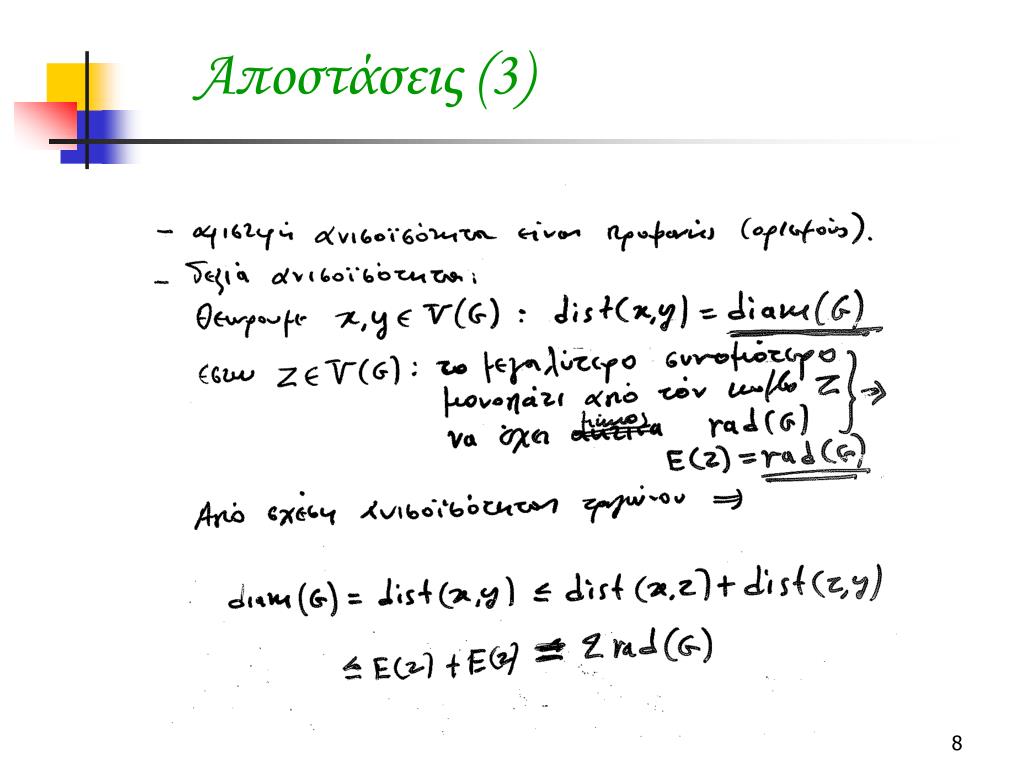 Αποστάσεις (3)
- αριστερή ανισοϊσότητα είναι προφανής (ορισμούς).
- δεξιά ανισοϊσότητα:
Θεωρουμε x,y ∈ V(G) : dist(x,y) = diam(G)
εστω z ∈ V(G) : το μεγαλύτερο συντομότερο
μονοπάτι από τον κομβο z } ⇒
να έχει μήκος rad(G)
E(z) = rad(G)
Από σχέση ανισοϊσότητας τριγώνου ⇒
diam(G) = dist(x,y) ≤ dist(x,z) + dist(z,y)
≤ E(z) + E(z) = 2 rad(G)
8